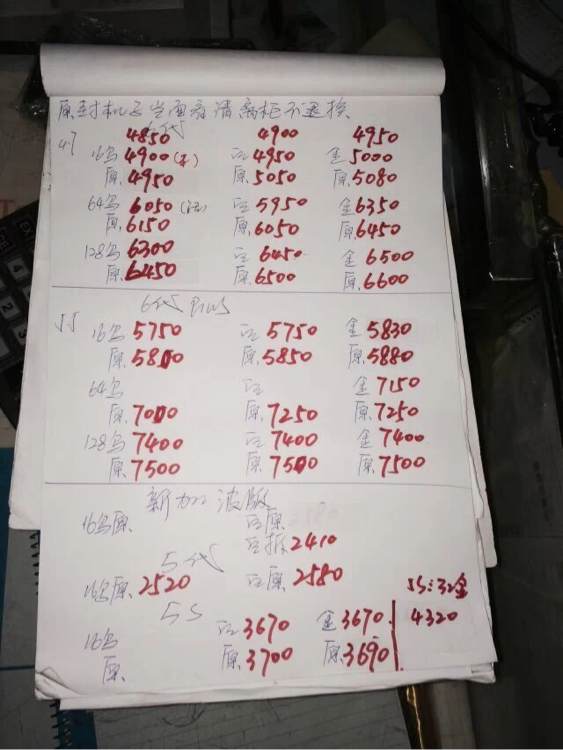 原封机子当面看清离柜不退换
6代
4.7 4850 4900 4950
16乌 4900 白 4950 金 5000
原 4950 原 5050 原 5080
64乌 6050 白 5950 金 6350
原 6150 原 6050 原 6450
128乌 6300 白 6450 金 6500
原 6450 原 6500 原 6600
6代 Plus
5.5 16乌 5750 白 5750 金 5830
原 5800 原 5850 原 5880
64乌 白 金 7150
原 7000 原 7250 原 7250
128乌 7400 白 7400 金 7400
原 7500 原 7500 原 7500
新加波版
16乌原 白原
白拆 2410
5代
16乌原 2520 白原 2580
5S
5S:32金
16乌 白 3670 金 3670 4320
原 原 3700 原 3690